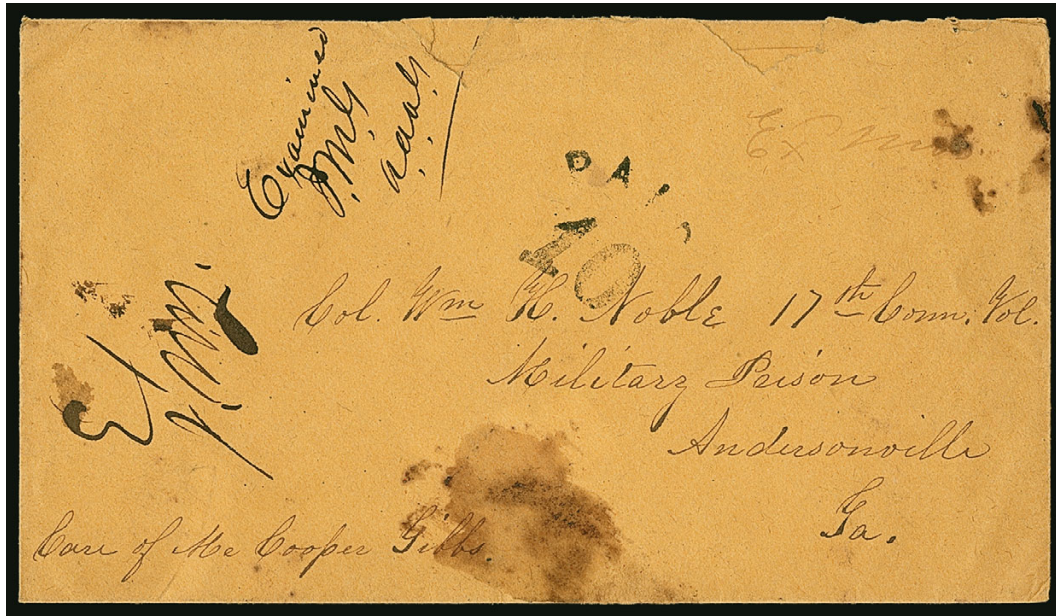 Examined
a.a.a.G
Ex
PAI
10
Col. Wm H. Noble 17th Conn. Vol.
Military Prison
Andersonville
Ga.
Ex
Care of Mr Cooper Gibbs.